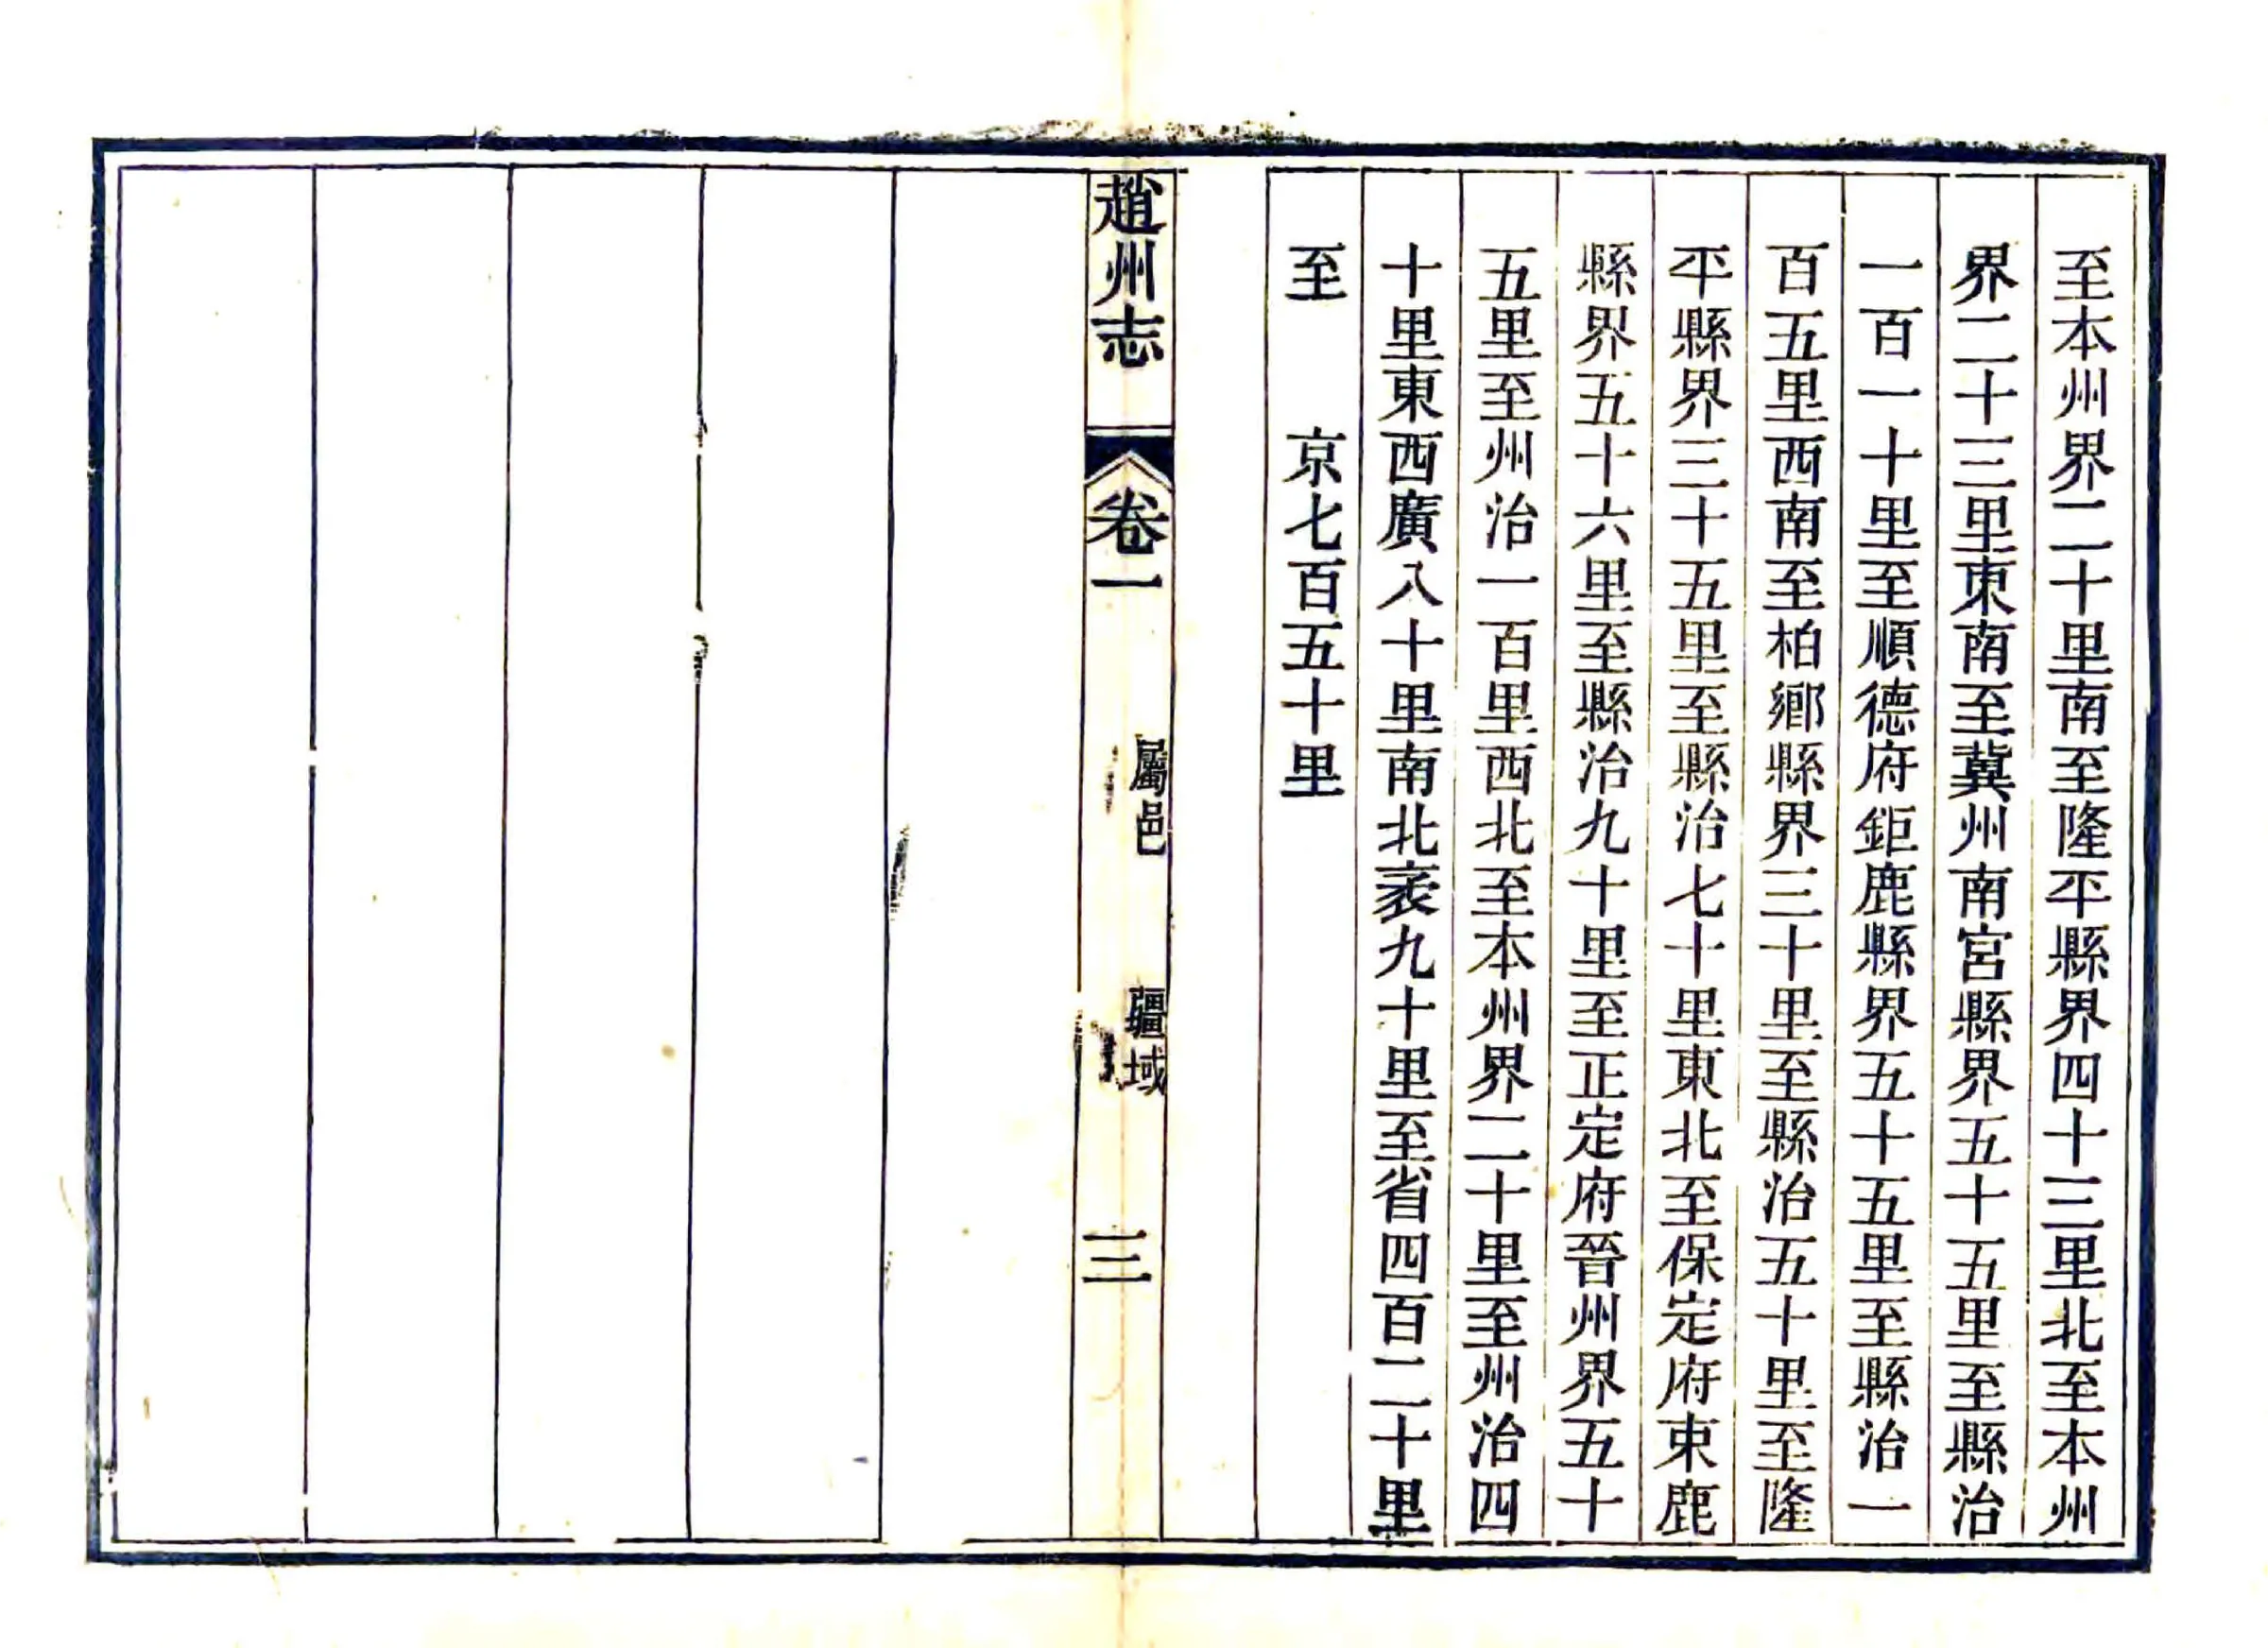 至本州界二十里南至隆平縣界四十三里北至本州
界二十三里東南至冀州南宮縣界五十五里至縣治
一百一十里至順德府鉅鹿縣界五十五里至縣治一
百五里西南至柏鄉縣界三十里至縣治五十里至隆
平縣界三十五里至縣治七十里東北至保定府束鹿
縣界五十六里至縣治九十里至正定府晉州界五十
五里至州治一百里西北至本州界二十里至州治四
十里東西廣八十里南北袤九十里至省四百二十里
至　京七百五十里
趙州志　卷一　屬邑　疆域　三